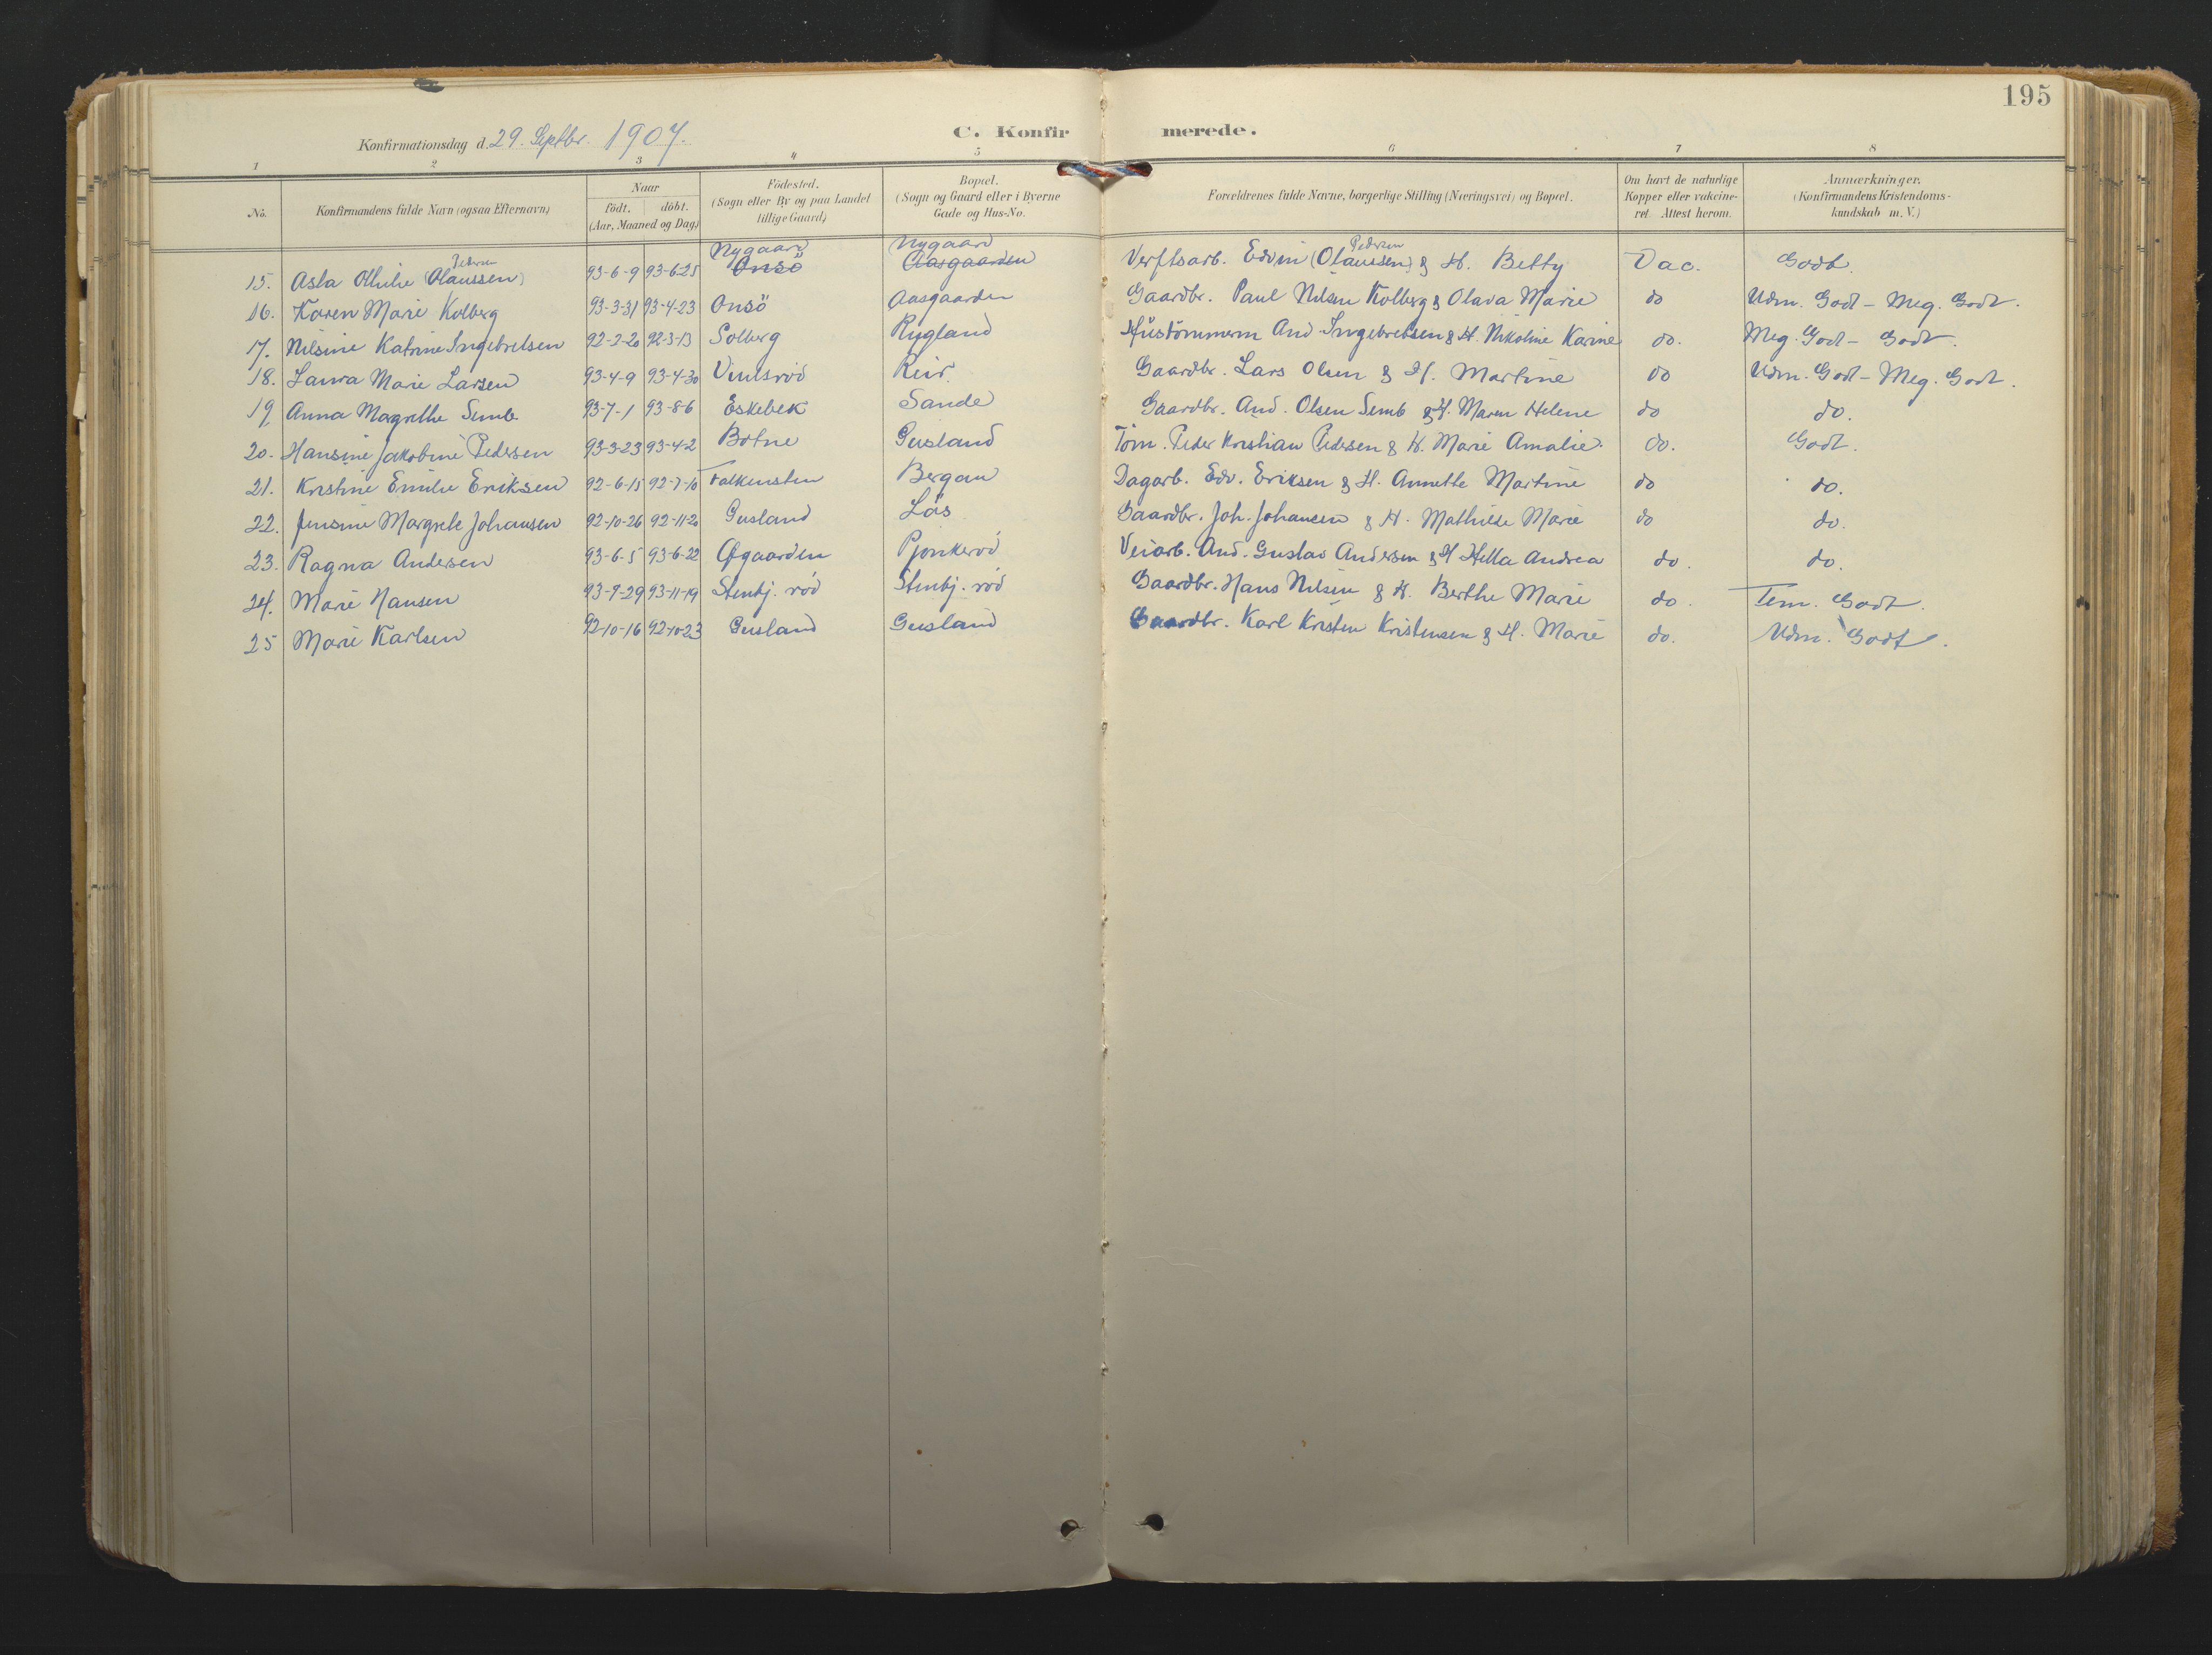 195
Konfirmationsdag d. 29. Septbr. 1907.
C. Konfirmerede.
1 2 3 4 5 6 7 8
No. Konfirmandens fulde Navn (ogsaa Efternavn) Naar födt. döbt. (Aar, Maaned og Dag) Födested. (Sogn eller By og paa Landet tillige Gaard) Bopæl. (Sogn og Gaard eller i Byerne Gade og Hus-No. Forældrenes fulde Navne, borgerlige Stilling (Næringsvei) og Bopæl. Om havt de naturlige Kopper eller vakcineret. Attest herom. Anmærkninger. (Konfirmandens Kristendomskundskab m. V.)
Pedersen Nygaard Nygaard Pedersen
15. Asla Othilie (Olaussen) 93-6-9 93-6-25 Onsö Aasgaarden Verftsarb. Edvin (Olaussen) & H. Betty Vac. Godt.
16. Karen Marie Kolberg 93-3-31 93-4-23 Onsö Aasgaarden Gaardbr. Paul Nilsen Kolberg & Olava Marie do Udm. Godt - Meg. Godt.
17. Nilsine Katrine Ingebretsen 92-2-20 92-3-13 Solberg Rygland Hustömmerm And. Ingebretsen & H. Nikoline Karine do. Meg. Godt - Godt.
18. Laura Marie Larsen 93-4-9 93-4-30 Gaardbr. Lars Olsen & H. Martine do Udm. Godt - Meg. Godt.
19. Anna Magrethe Semb 93-7-1 93-8-6 Eskebek Sande Gaardbr. And. Olsen Semb & H. Maren Helene do do.
20. Hansine Jakobine Pedersen 93-3-23 93-4-2 Botne Gusland Töm. Peder Kristian Pedersen & H. Marie Amalie do. Godt.
21. Kristine Emilie Eriksen 92-6-15 92-7-10 Falkensten Bergan Dagarb. Edv. Eriksen & H. Annette Martine do do.
22. Jensine Margrete Johansen 92-10-26 92-11-20 Gusland Lös Gaardbr. Joh. Johansen & H. Mathilde Marie do do.
23. Ragna Andersen 93-6-5 93-6-22 Øgaarden Pjonkeröd Veiarb. And. Gustav Andersen & H Hella Andrea do. do.
24. Marie Hansen 93-9-29 93-11-19 Stenbj. röd Stenbj. röd Gaardbr. Hans Nilsen & H. Berthe Marie do. Tem. Godt.
25 Marie Karlsen 92-10-16 92-10-23 Gusland Gusland Gaardbr. Karl Kristen Kristensen & H. Marie do. Udm. Godt.